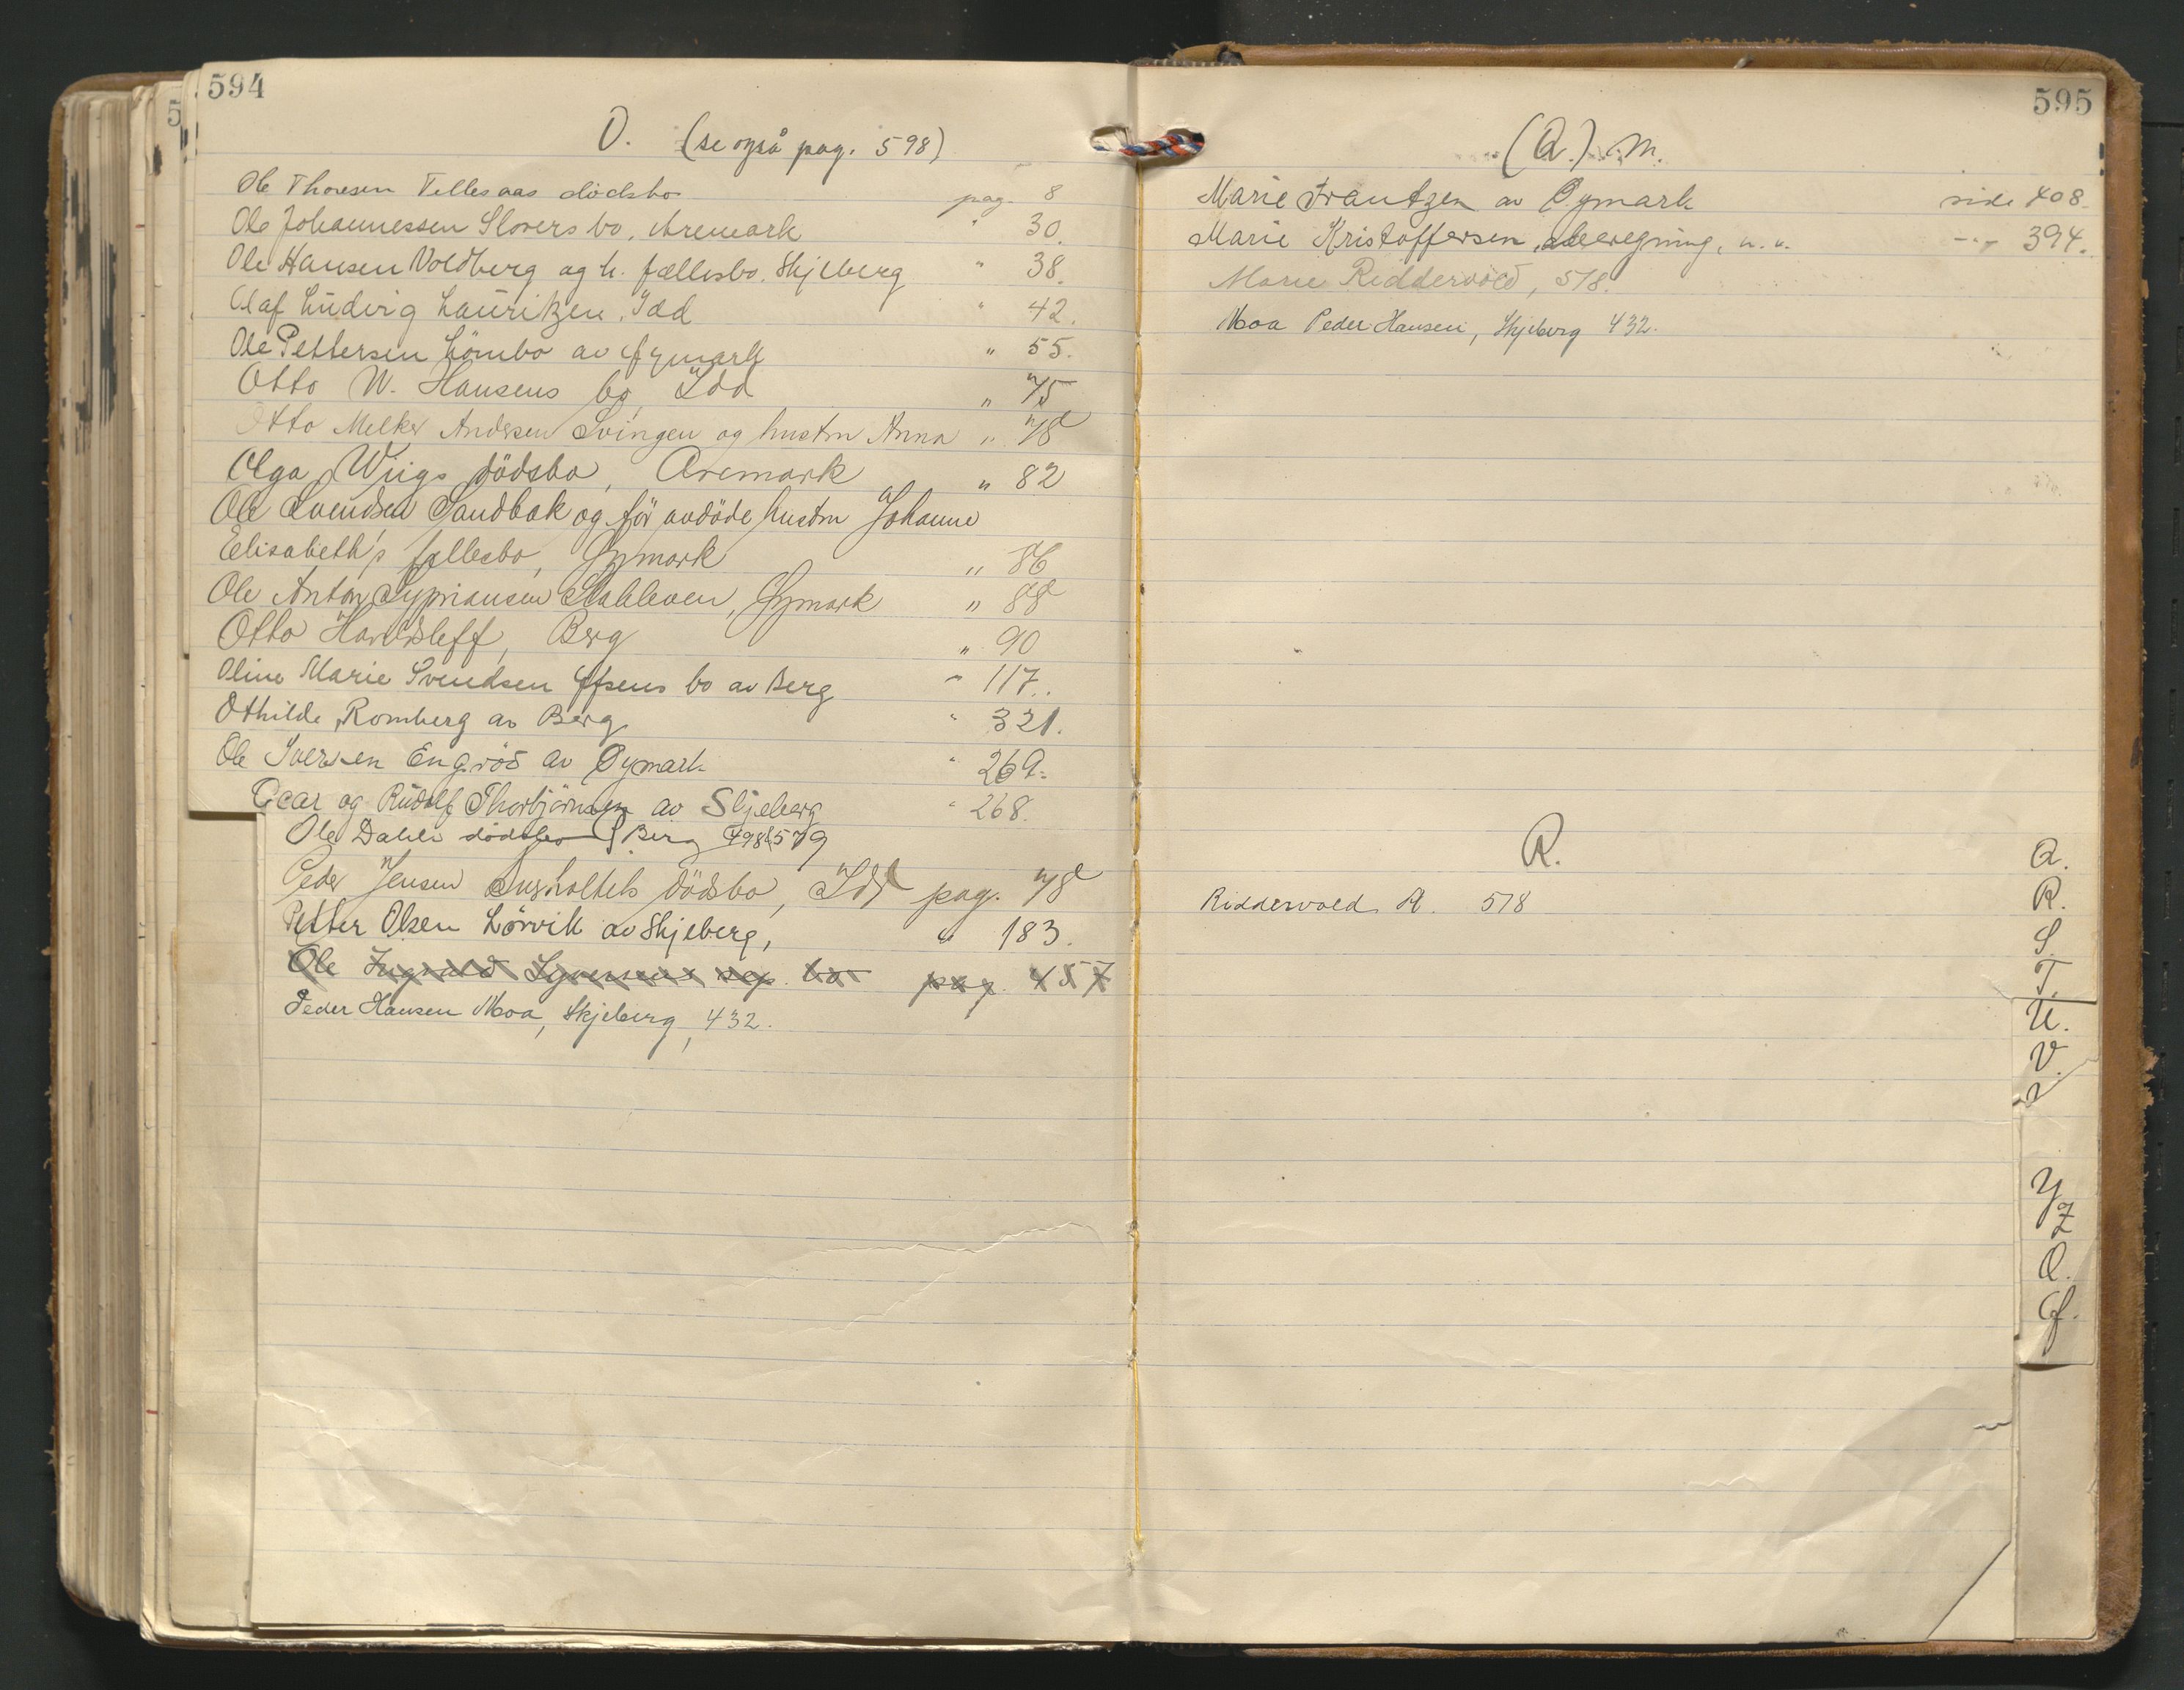 594
O. (se også pag. 598)
Ole Thoresen Tellesaas dödsbo pag. 8
Ole Johannessen Slorers bo, Aremark " 30.
Ole Hansen Voldberg og h. fællesbo. Skjeberg " 38.
Olaf Ludvig Lauritzen. Idd " 42.
Ole Pettersen Lömbo av Øymark " 55.
Otto W. Hansens bo, Idd " 75
Otto Melker Andersen Svingen og hustru Anna " 78
Olga Wiigs dödsbo, Aremark " 82
Ole Svendsen Sandbæk og før avdöde hustru Johanne
Elisabeth's fællesbo, Øymark " 86
Ole Anton Sypriansen, Øymark " 88
Otto, Berg " 90
Oline Marie Svendsen bo av Berg " 117..
Othilde Romberg av Berg " 321.
Ole Iversen Engröd av Øymark " 269.
Oscar og Rudolf Thorbjörnsen av Skjeberg " 268.
Ole Dahls dödsbo Berg 498 579
Peder Jensen dödsbo, Idd pag. 78
Petter Olsen Lörvik av Skjeberg, " 183.
Ole Ingvald Syversens bo pag. 457
Peder Hansen Moa, Skjeberg, 432.
595
(Q.) M.
Marie Frantzen av Øymark side 408.
Marie Kristoffersen, n. u. -"- 394.
Marie Riddervold, 578.
Moa Peder Hansen, Skjeberg 432.
R.
Riddervold M. 578
Q.
R.
S.
T.
U.
V.
Y
Z
Ø.